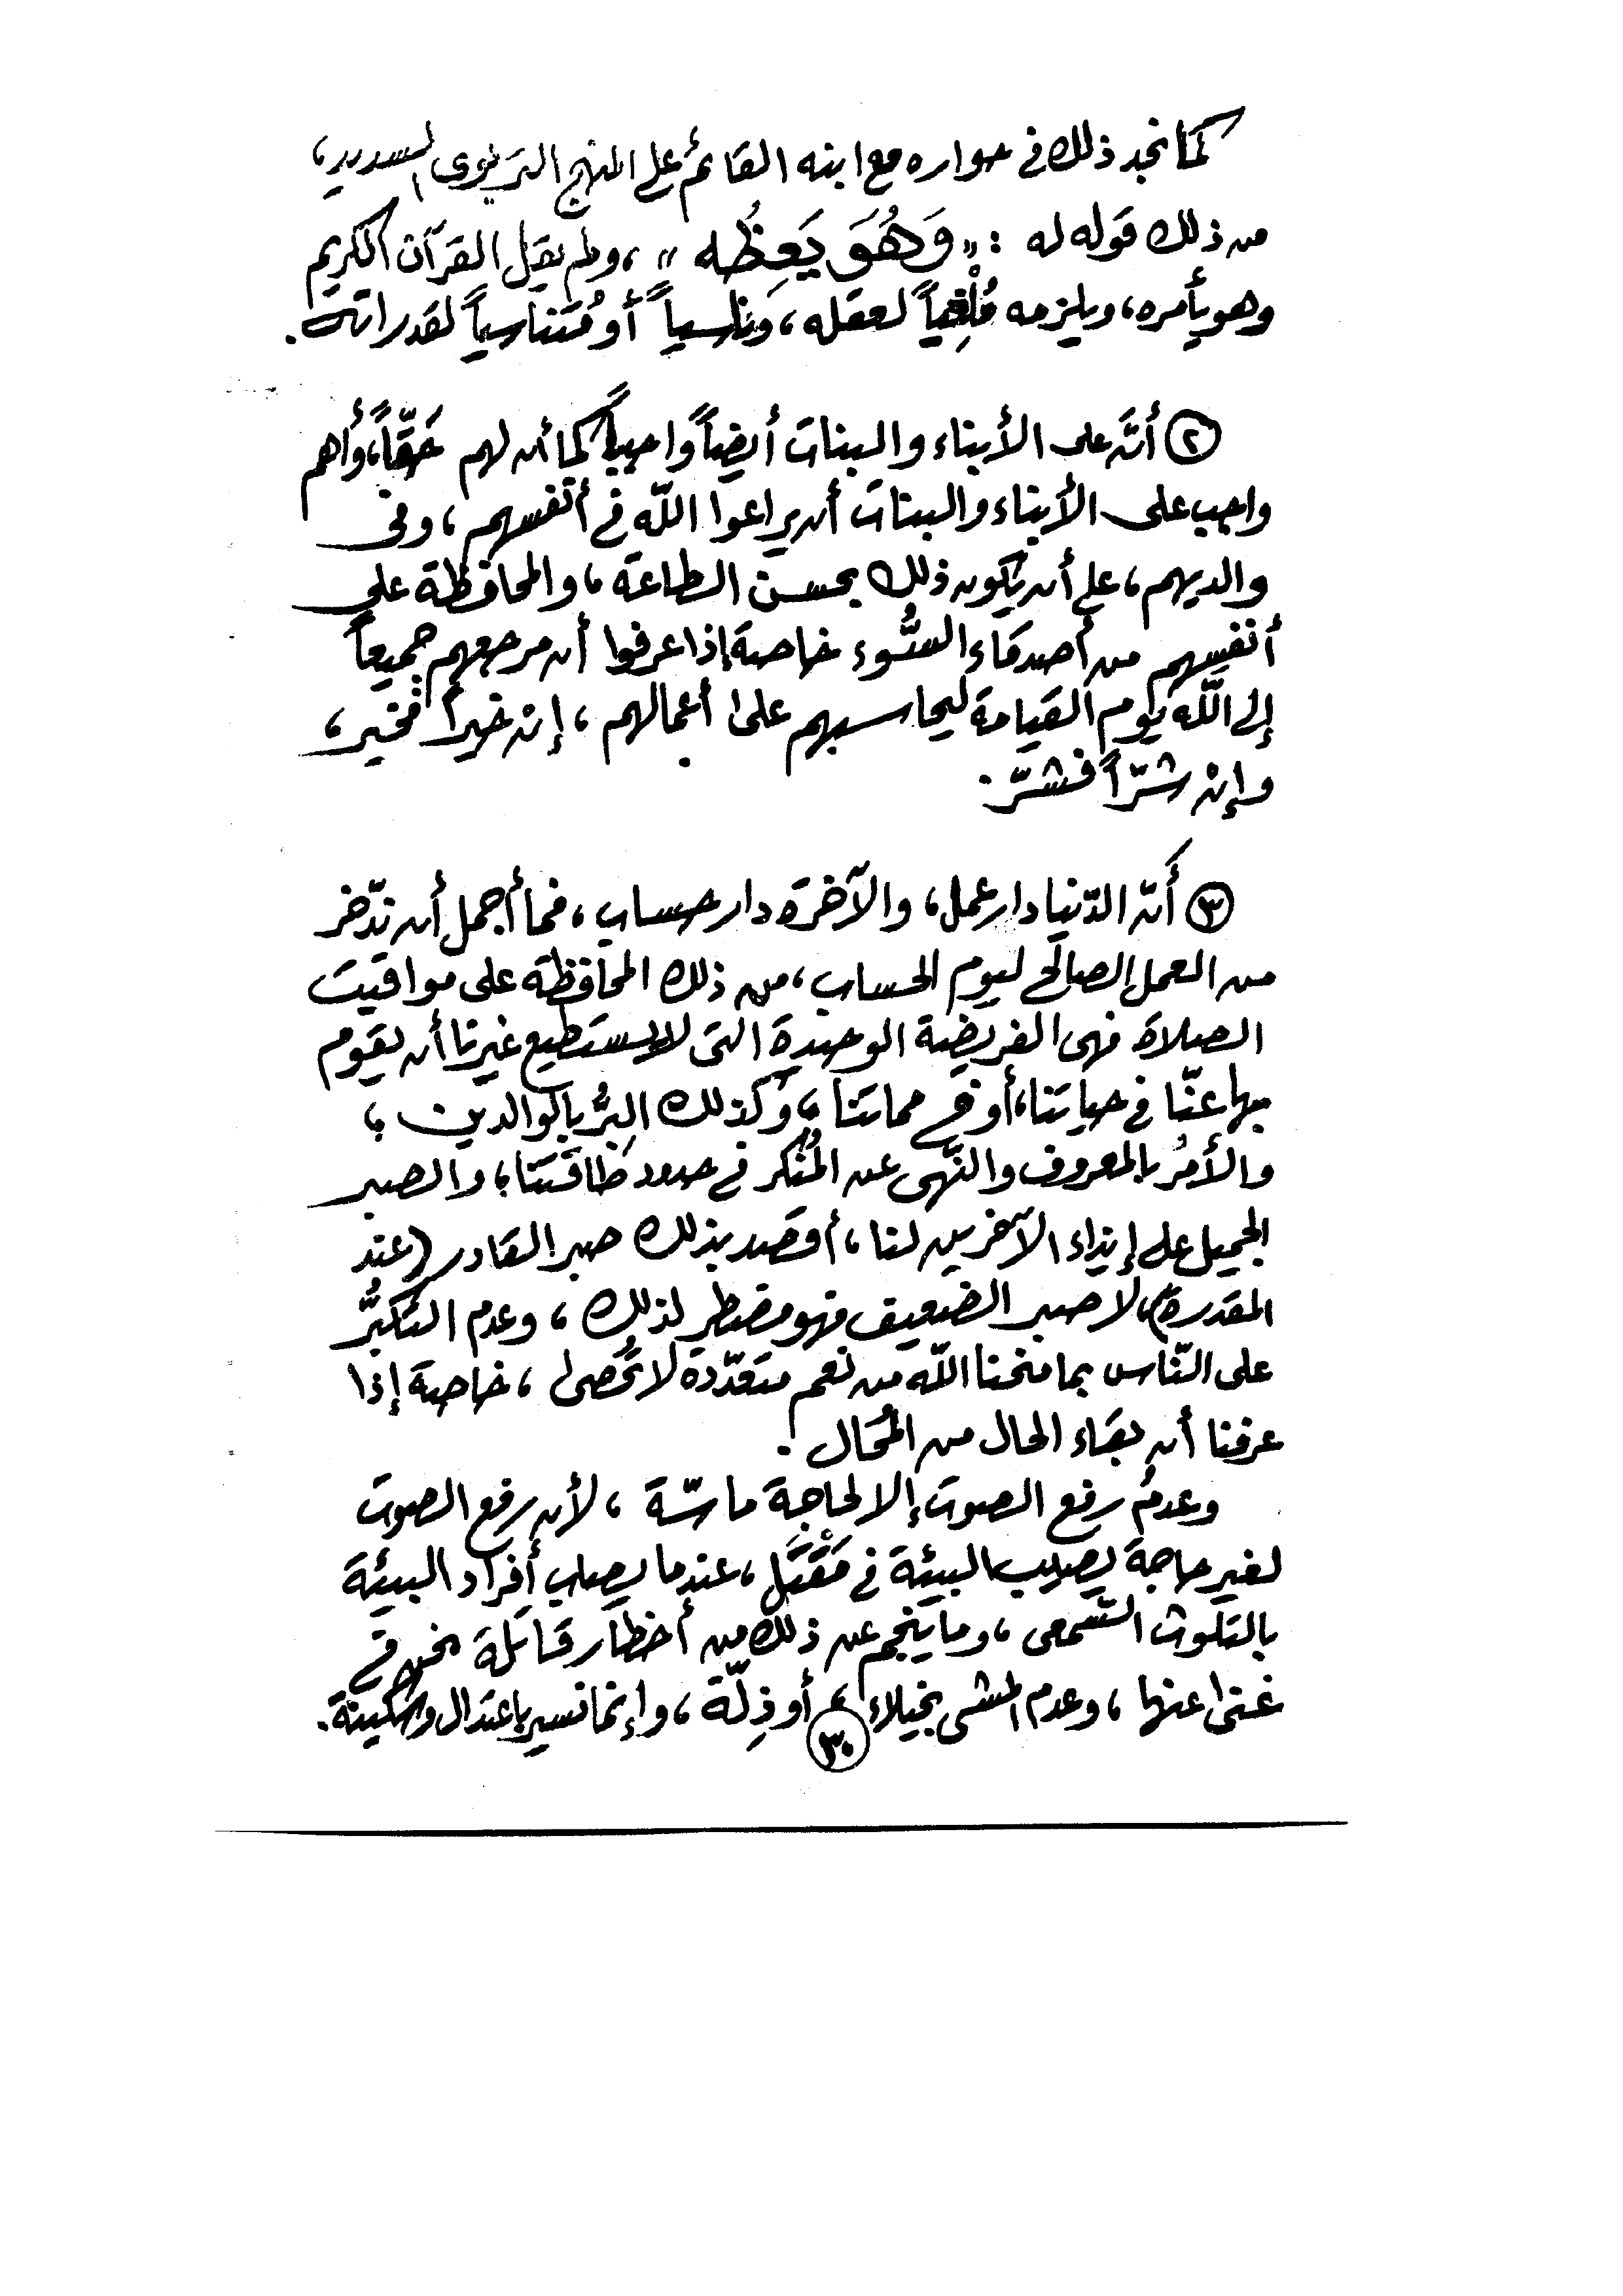 كما نجد ذلك في حواره مع ابنه القائم على المنهج التربوى السديد،
من ذلك قوله له : « وَهُوَ يَعِظُه » ، ولم يقل القرآن الكريم
وهو يأمره، ويلزمه مُلْغِياً لعقله، وناسياً أو مُتناسياً لقدراته .
② أنَّه على الأبناء والبنات أيضاً واجباً كما أن لهم حَقّاً، وأهم
واجب على الأبناء والبنات أن يراعوا اللّه في أنفسهم ، وفى
والديهم، على أن يكون ذلك بحسن الطاعة ، والمحافظة على
أنفسهم من أصدقاء السُّوء خاصة إذا عرفوا أن مرجعهم جميعاً
إلى اللّه يوم القيامة ليحاسبهم على أعمالهم ، إنْ خيراً فخير ،
وإنْ شرّاً فشرّ .
③ أنّ الدّنيا دار عمل، والآخرة دار حساب ، فما أجمل أن ندّخر
من العمل الصالح ليوم الحساب، من ذلك المحافظة على مواقيت
الصلاة فهى الفريضة الوحيدة التى لا يستطيع غيرنا أن يقوم
بها عنّا في حياتنا، أو في مماتنا ، وكذلك البِرُّ بالوالدين ،
والأمرُ بالمعروف والنّهى عن المُنْكر في حدود طاقتنا ، والصبر
الجميل على إيذاء الآخرين لنا ، أقصد بذلك صبر القادر (عند
المقدرة)، لا صبر الضعيف فهو مضطر لذلك ، وعدم التكبُّر
على النّاس بما منحنا اللّه من نعم متعدّدة لا تُحصى ، خاصة إذا
عرفنا أن بقاء الحال من المُحَال .
وعدمُ رفع الصوت إلا لحاجة ماسّة ، لأن رفع الصوت
لغير حاجة يصيب البيئة في مَقْتَل ، عندما يصاب أفراد البيئة
بالتلوث السّمعى ، وما ينجم عن ذلك من أخطار قاتلة نحن في
غنى عنها ، وعدم المشى بخيلاء ، أو ذِلّة ، وإنما نسير باعتدال وسكينة .
٣٠